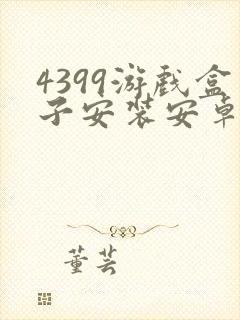 4399游戏盒
子安装安卓
董芸